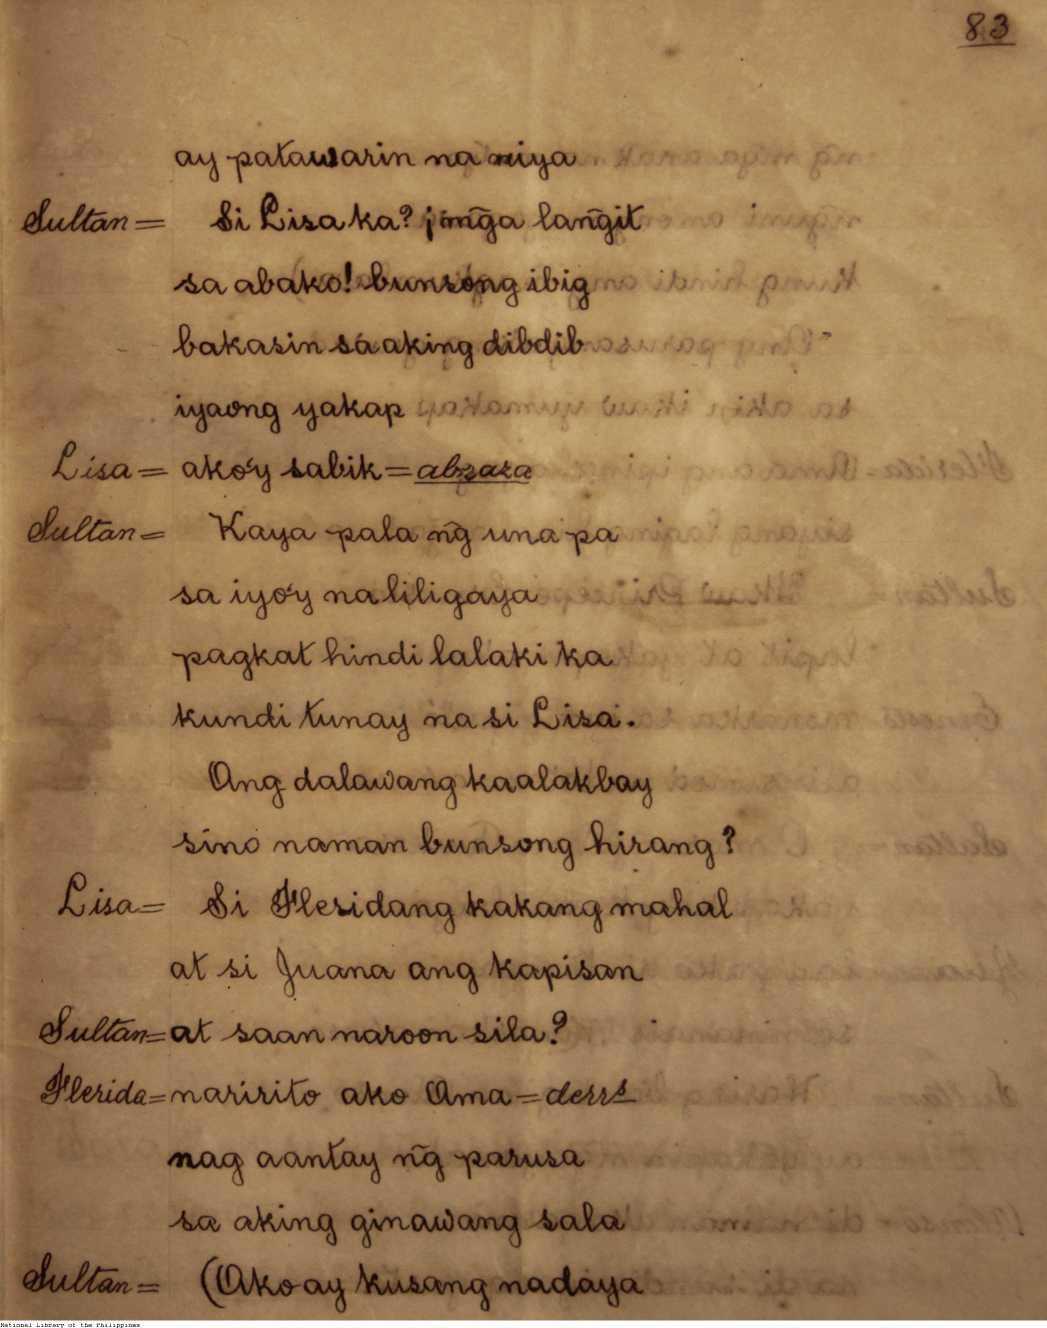 83
ay patawarin na niya
Sultan = Si Lisa ka? ¡mg̃a lang̃it
sa abako! bunsong ibig
bakasin sa aking dibdib
iyaong yakap
Lisa = ako'y sabik = abraza
Sultan = Kaya pala ng̃ una pa
sa iyo'y naliligaya
pagkat hindi lalaki ka
kundi tunay na si Lisa.
Ang dalawang kaalakbay
sino naman bunsong hirang?
Lisa = Si Fleridang kakang mahal
at si Juana ang kapisan
Sultan = at saan naroon sila?
Flerida = naririto ako Ama =
nag aantay ng̃ parusa
sa aking ginawang sala
Sultan = (Ako ay kusang nadaya
National Library of the Philippines